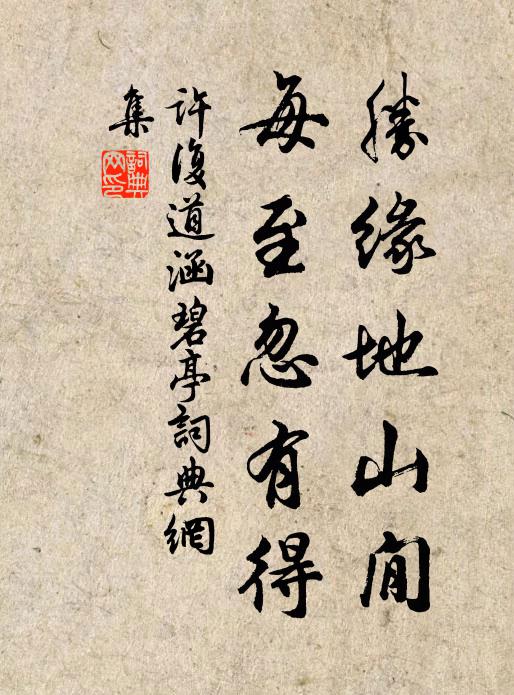 勝緣地山間
每至忽有得
許復道涵碧亭詞典網
集
詞典網印